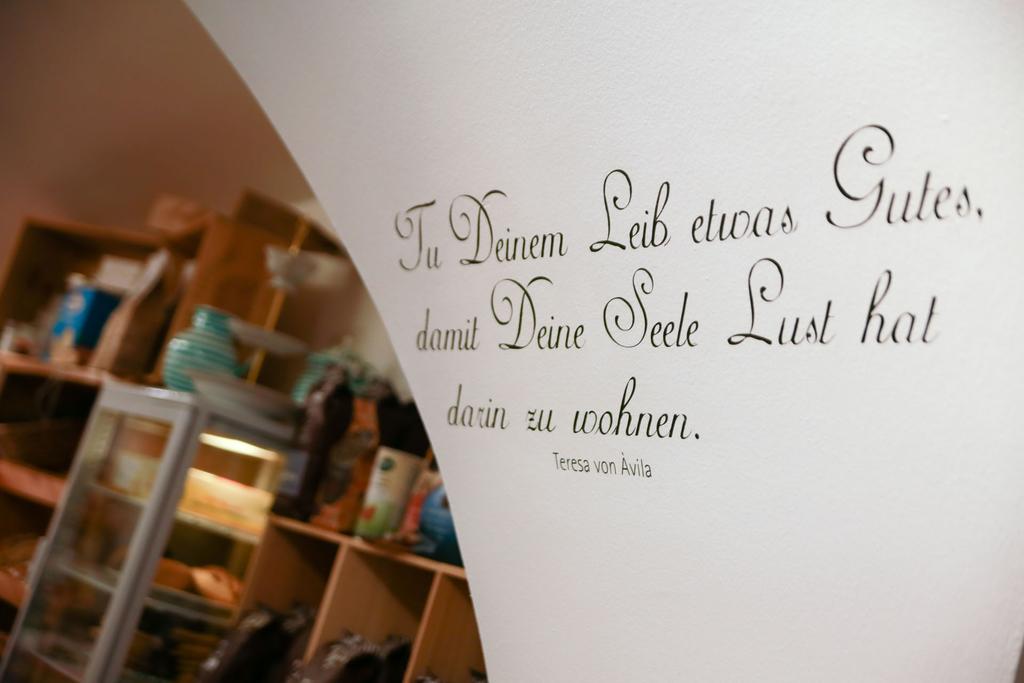 Tu Deinem Leib etwas Gutes,
damit Deine Seele Lust hat
darin zu wohnen.
Teresa von Àvila